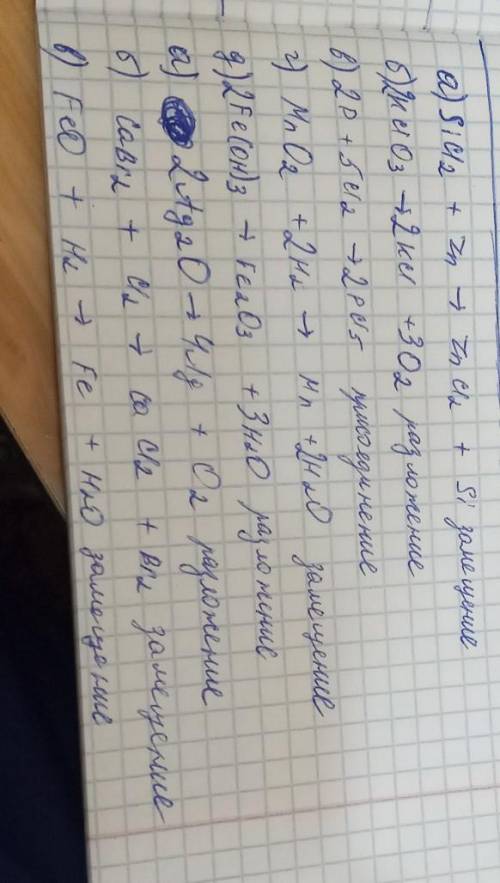 а) SiCl2 + Zn → ZnCl2 + Si замещение
б) 2KClO3 → 2KCl + 3O2 разложение
в) 2P + 5Cl2 → 2PCl5 присоединение
г) MnO2 + 2H2 → Mn + 2H2O замещение
д) 2Fe(OH)3 → Fe2O3 + 3H2O разложение
а) 2Ag2O → 4Ag + O2 разложение
б) CaBr2 + Cl2 → CaCl2 + Br2 замещение
в) FeO + H2 → Fe + H2O замещение